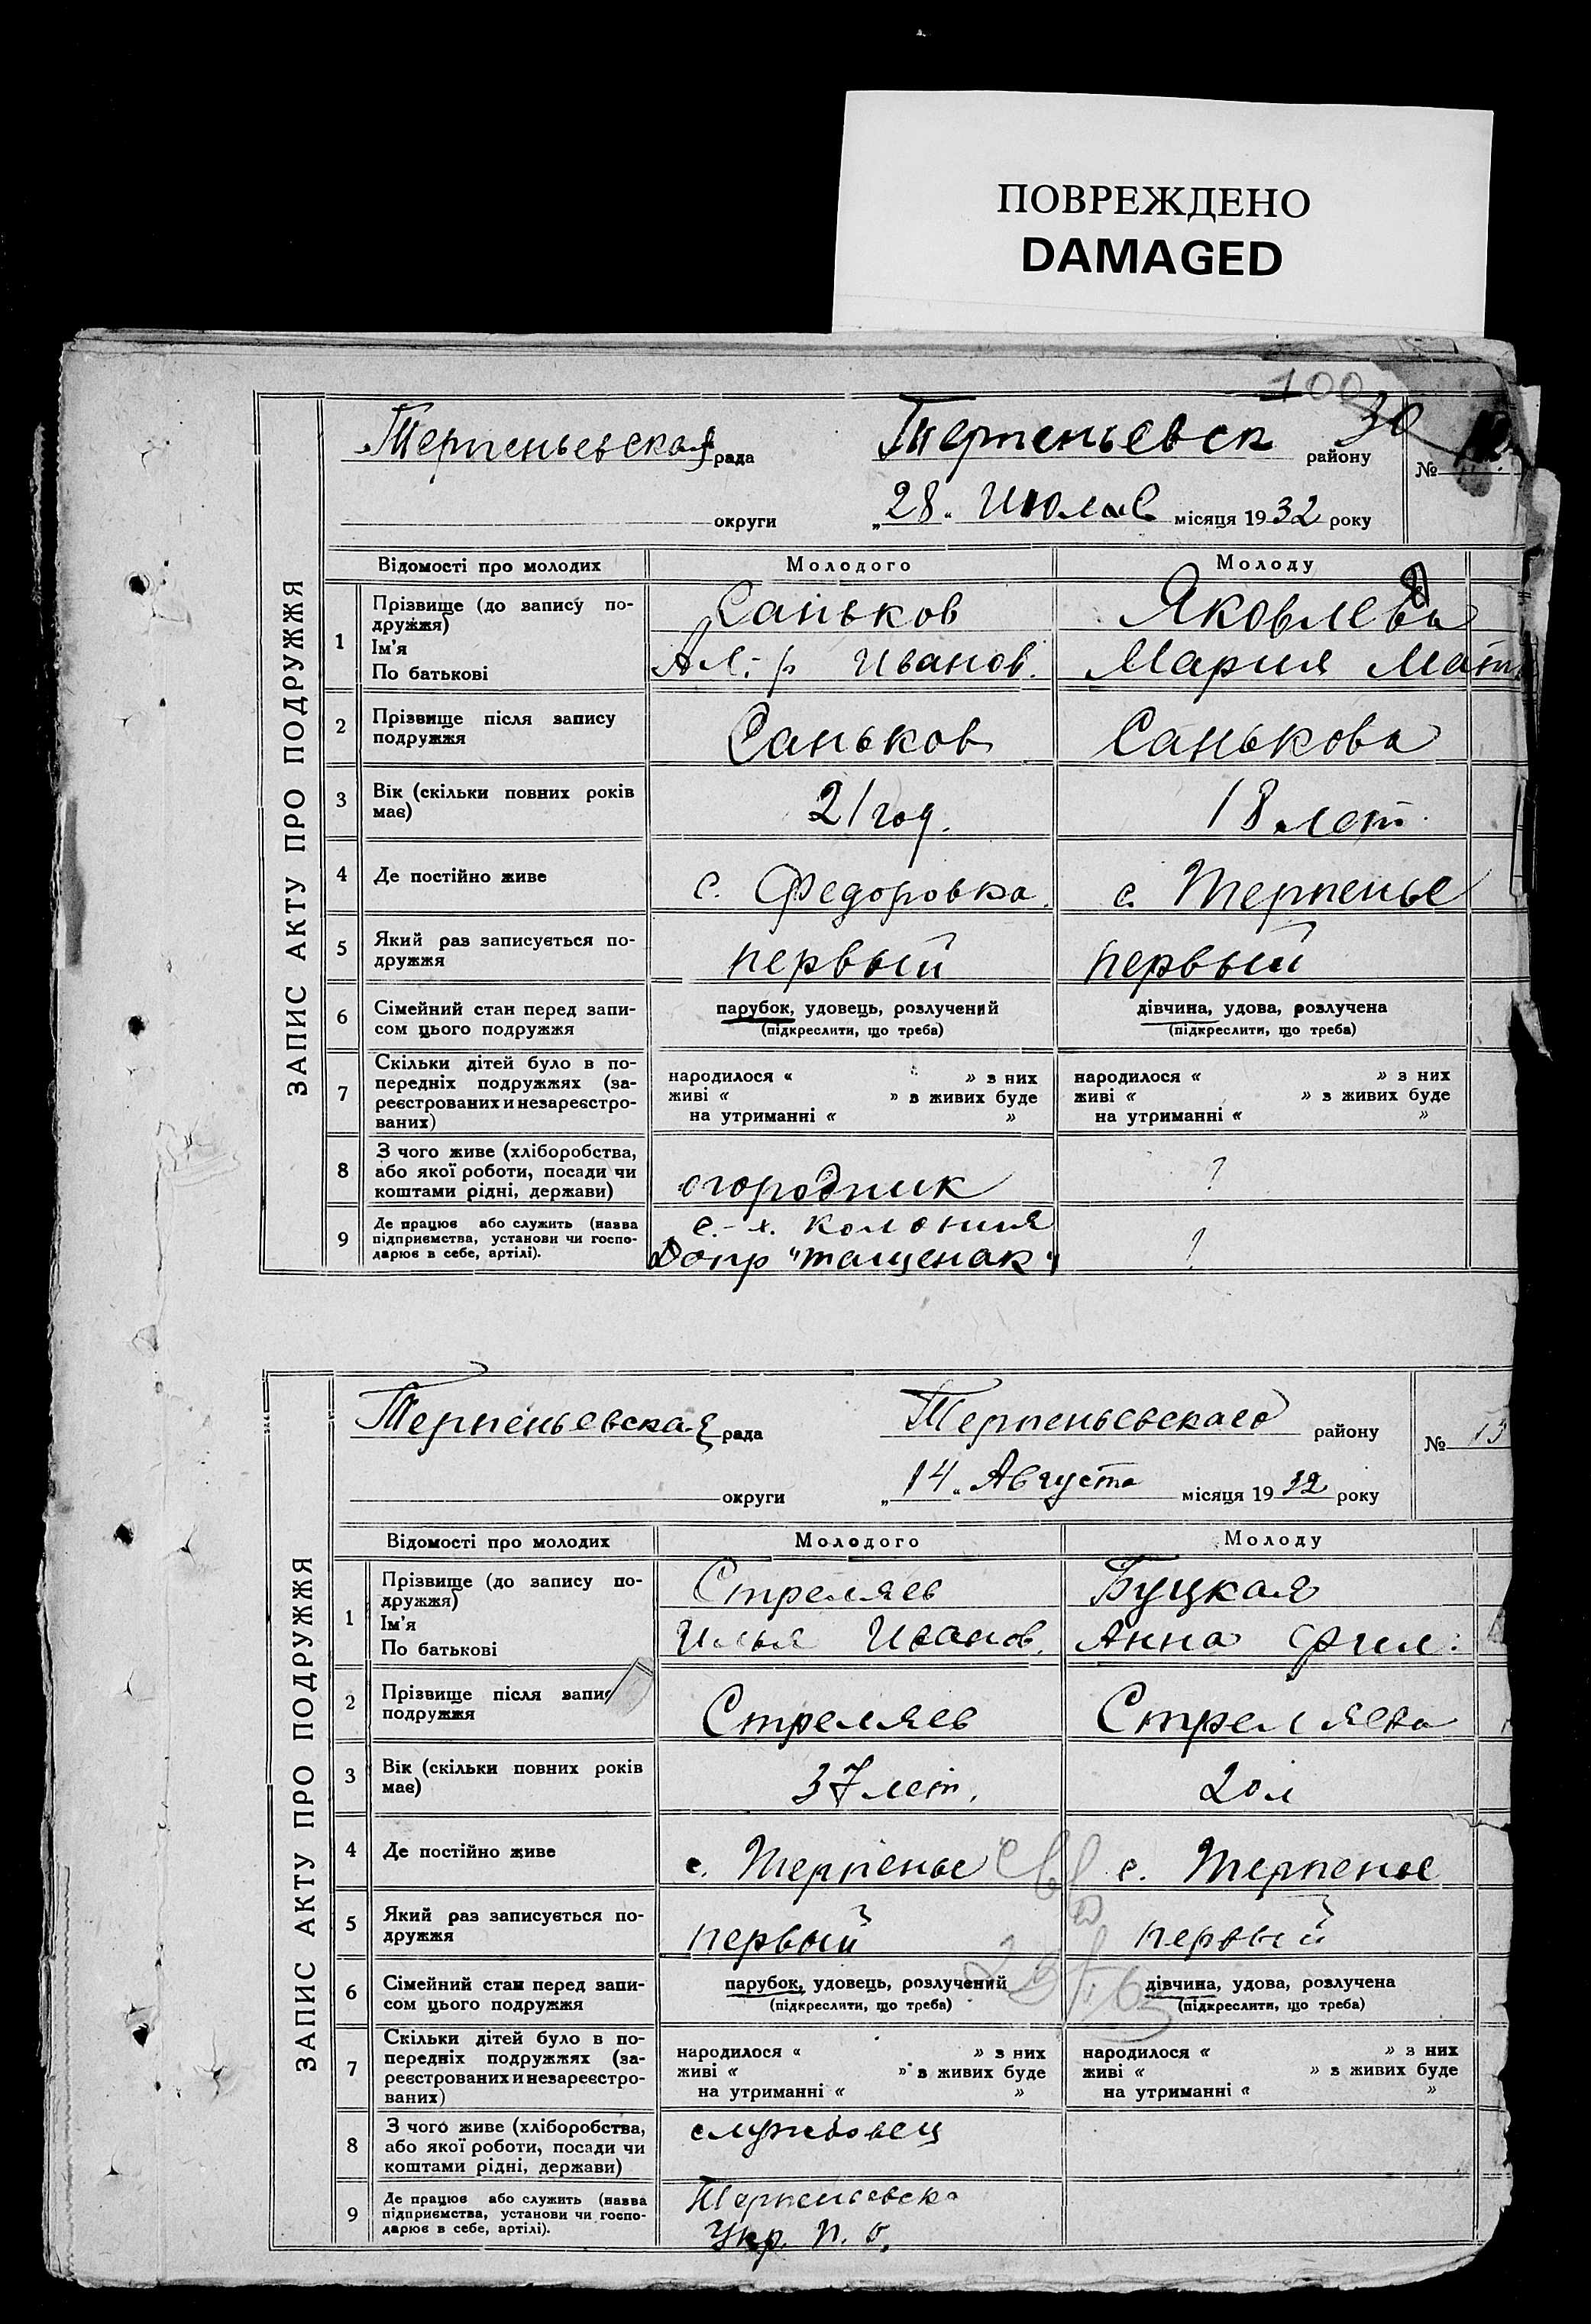 ПОВРЕЖДЕНО
DAMAGED
100
30
Терпеньевская рада Терпеньевск району №
округи „28„ Июля місяця 1932 року
ЗАПИС АКТУ ПРО ПОДРУЖЖЯ
Відомості про молодих Молодого Молоду
1 Прізвище (до запису по-
дружжя)
Ім'я
По батькові
Саньков Яковлева
Ал-р Иванов. Мария Мат
2 Прізвище після запису
подружжя
Саньков Санькова
3 Вік (скільки повних років
має)
21 год. 18 лет
4 Де постійно живе с. Федоровка. с. Терпенье
5 Який раз записується по-
дружжя
первый первый
6 Сімейний стан перед запи-
сом цього подружжя
парубок, удовець, розлучений дівчина, удова, розлучена
(підкреслити, що треба) (підкреслити, що треба)
7 Скільки дітей було в по-
передніх подружжях (за-
реєстрованих и незареєстро-
ваних)
народилося « » з них народилося « » з них
живі « » в живих буде живі « » в живих буде
на утриманні « » на утриманні « »
8 З чого живе (хліборобства,
або якої роботи, посади чи
коштами рідні, держави)
огородник ?
9 Де працює або служить (назва
підприємства, установи чи госпо-
дарює в себе, артілі).
с.-х. колония ?
Допр "Тащенак"
Терпеньевская рада Терпеньевского району № 13
округи „14„ Августа місяця 1932 року
ЗАПИС АКТУ ПРО ПОДРУЖЖЯ
Відомості про молодих Молодого Молоду
1 Прізвище (до запису по-
дружжя)
Ім'я
По батькові
Стреляев Буцкая
Илья Иванов. Анна Фил.
2 Прізвище після запис
подружжя
Стреляев Стреляева
3 Вік (скільки повних років
має)
37 лет. 20 л
4 Де постійно живе с. Терпенье с. Терпенье
5 Який раз записується по-
дружжя
первый первый
6 Сімейний стан перед запи-
сом цього подружжя
парубок, удовець, розлучений дівчина, удова, розлучена
(підкреслити, що треба) (підкреслити, що треба)
7 Скільки дітей було в по-
передніх подружжях (за-
реєстрованих и незареєстро-
ваних)
народилося « » з них народилося « » з них
живі « » в живих буде живі « » в живих буде
на утриманні « » на утриманні « »
8 З чого живе (хліборобства,
або якої роботи, посади чи
коштами рідні, держави)
службовец
9 Де працює або служить (назва
підприємства, установи чи госпо-
дарює в себе, артілі).
Терпеньевск
Укр. п. б.